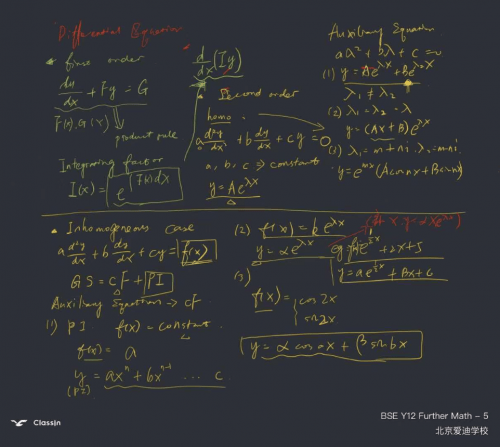 Differential Equation
• first order
dy/dx + Fy = G
F(x), G(x)
product rule
Integrating factor
I(x) = e^∫F(x)dx
d/dx (Iy)
• Second order
homo.
a d²y/dx² + b dy/dx + cy = 0
a, b, c ⇒ constant
y = Ae^λx
Auxiliary Equation
aλ² + bλ + c = 0
(1) y = Ae^λ₁x + Be^λ₂x
λ₁ ≠ λ₂
(2) λ₁ = λ₂ = λ
y = (Ax + B) e^λx
(3) λ₁ = m + ni, λ₂ = m - ni
y = e^mx (A cos nx + B sin nx)
• Inhomogeneous case
a d²y/dx² + b dy/dx + cy = f(x)
GS = CF + PI
Auxiliary Equation → CF
(1) PI f(x) = constant
f(x) = a
y = axⁿ + bxⁿ⁻¹ ... c
(PI)
(2) f(x) = be^λx
y = αe^λx
(3)
f(x) = { cos 2x
sin 2x
y = α cos ax + β sin bx
+ 2x + 5
BSE Y12 Further Math - 5
北京爱迪学校
ClassIn